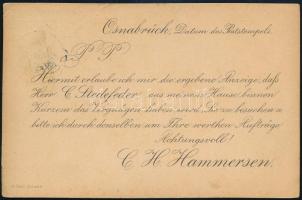 Osnabrück, Datum des Poststempels.
P. P.
Hiermit erlaube ich mir die ergebene Anzeige, daß
Herr C. Stedefeder, aus meinem Hause, binnen
Kurzem das Vergnügen haben wird, Sie zu besuchen u.
bitte ich durch denselben um Ihre werthen Aufträge
Achtungsvoll!
C. H. Hammersen.